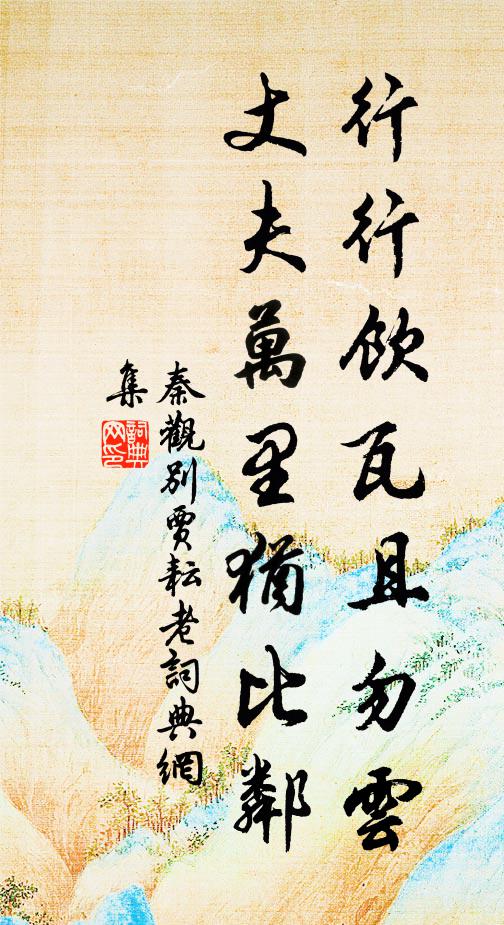 行行飲瓦且勿雲
丈夫萬里猶比鄰
秦觀別賈耘老詞典網
集
詞典
网印